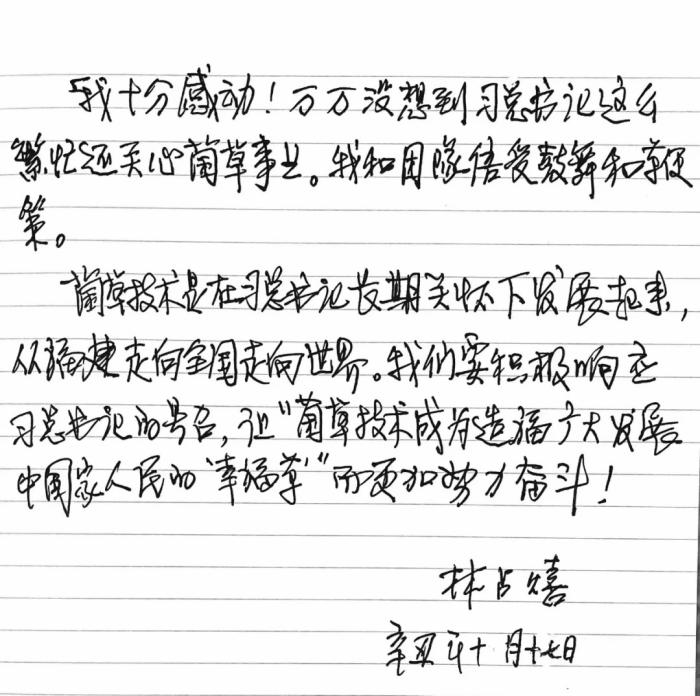 我十分感动！万万没想到习总书记这么
繁忙还关心菌草事业。我和团队倍受鼓舞和鞭
策。
菌草技术是在习总书记长期关怀下发展起来，
从福建走向全国走向世界。我们要积极响应
习总书记的号召，让"菌草技术成为造福广大发展
中国家人民的'幸福草'"而更加努力奋斗！
林占熺
辛丑年十月十七日